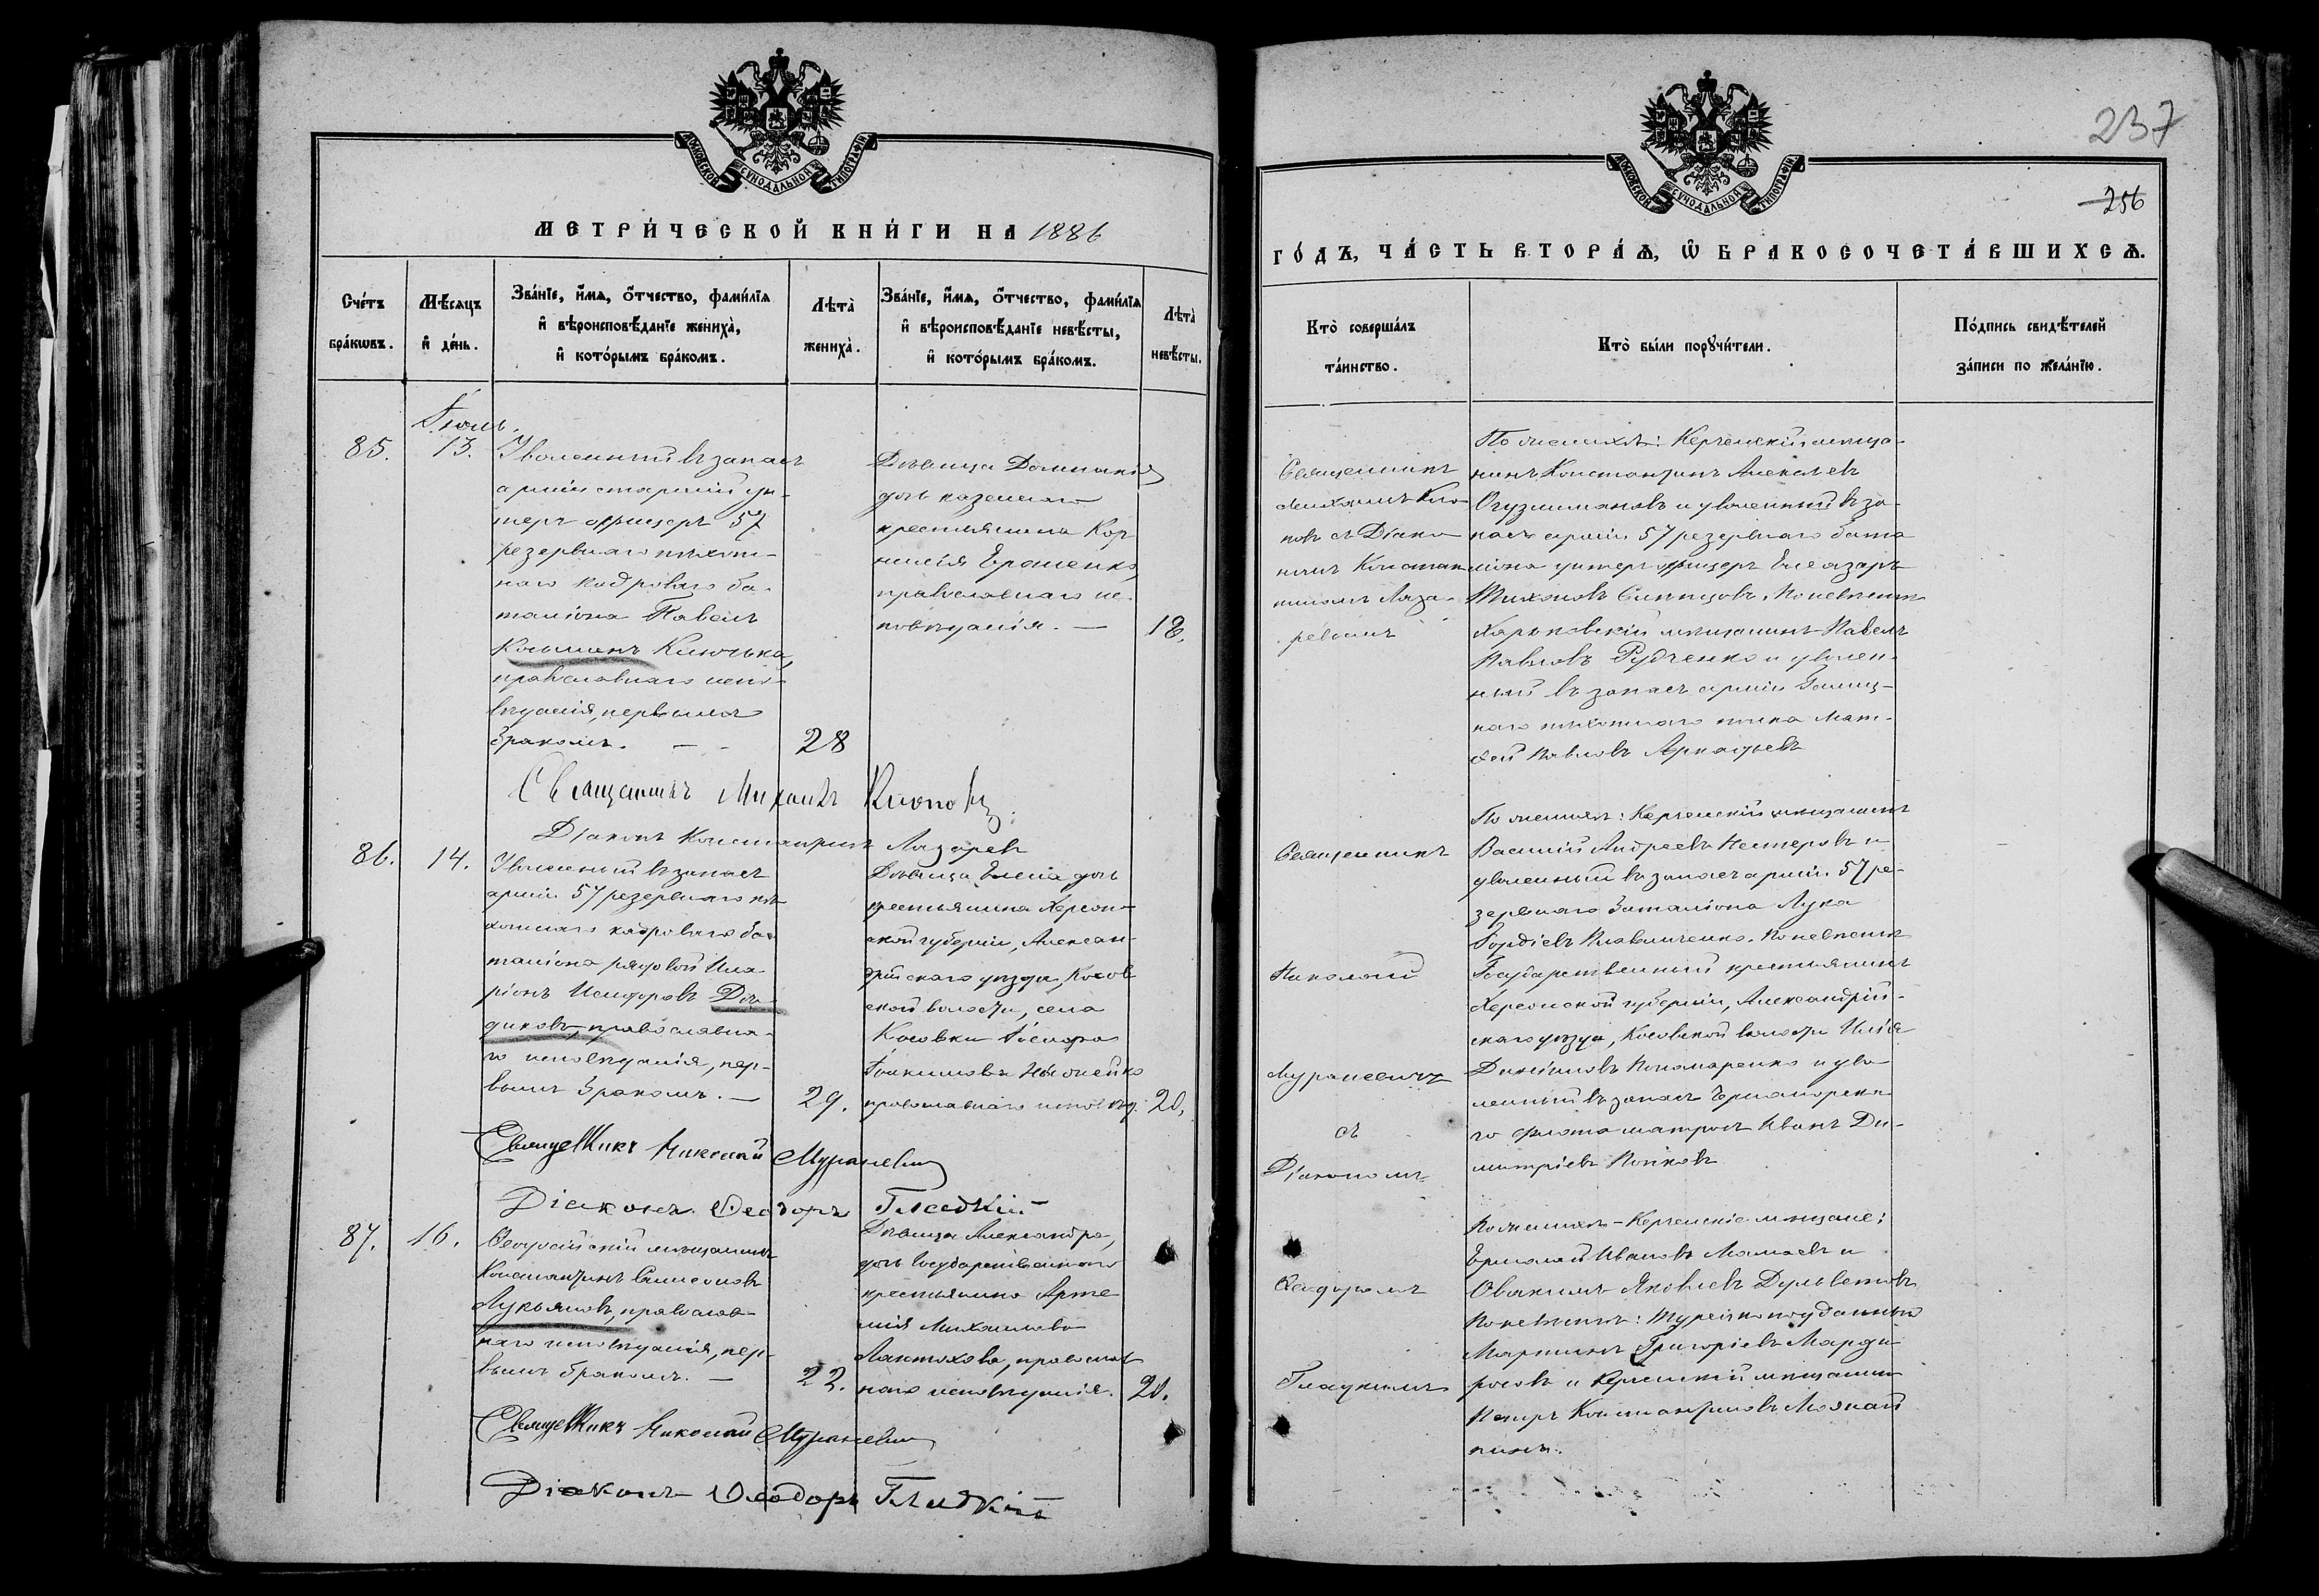 МОСКОВСКОЙ СѴНОДАЛЬНОЙ ТИПОГРАФІИ
МЕТРИ́ЧЕСКОЙ КНИ́ГИ НА 1886
Сче́тъ бра́кѡвъ.
Мѣ́сяцъ и҆ де́нь.
Зва́нїе, и҆́мѧ, ѻ҆́тчество, фами́лїѧ
и҆ вѣроисповѣ́данїе жениха̀,
и҆ кото́рымъ бра́комъ.
Лѣта̀ жениха̀.
Зва́нїе, и҆́мѧ, ѻ҆́тчество, фами́лїѧ
и҆ вѣроисповѣ́данїе невѣ́сты,
и҆ кото́рымъ бра́комъ.
Лѣта̀ невѣ́сты.
Іюль.
85.
13.
Уволенный въ запасъ
арміи старшій ун-
теръ офицеръ 57
резервнаго пѣхот-
наго кадроваго ба-
таліона Павелъ
православнаго испо-
вѣданія, первымъ
бракомъ. —
28
Дѣвица Домникія
дочь казеннаго
крестьянина Кор
нилія Ерошенко,
православнаго ис-
повѣданія. —
18.
Священникъ Михаилъ Клоповъ
Діаконъ Константинъ Лазаревъ
86.
14.
Уволенный въ запасъ
арміи 57 резервнаго пѣ-
хотнаго кадроваго ба-
таліона рядовой Ила
ріонъ Исидоровъ Дѣ-
диковъ, православна-
го исповѣданія, пер-
вымъ бракомъ. —
29.
Дѣвица Елена дочь
крестьянина Херсон-
ской губерніи, Алексан-
дрійскаго уѣзда, Косов
ской волости, села
Косовки
православнаго исповѣд.
20.
Священникъ Николай Мураневич
Діаконъ Ѳеодоръ Гладкій
87.
16.
Ѳеодосійскій мѣщанинъ
Константинъ Симеоновъ
Лукьяновъ, православ-
наго исповѣданія, пер-
вымъ бракомъ. —
22.
Дѣвица Александра,
дочь Государственнаго
крестьянина Арте
мія Михаилова
православ
наго исповѣданія.
20.
Священникъ Николай Мураневич
Діаконъ Ѳеодоръ Гладкій
237
256
МОСКОВСКОЙ СѴНОДАЛЬНОЙ ТИПОГРАФІИ
ГО́ДЪ, ЧА́СТЬ ВТОРА́Ѧ, Ѽ БРАКОСОЧЕТА́ВШИХСѦ.
Кто̀ соверша́лъ та́инство.
Кто̀ бы́ли порꙋчи́тели.
По́дпись свидѣ́телей за́писи по жела́нїю.
Священникъ
Михаилъ Кло
повъ съ Діако
номъ Констан
тиномъ Лаза-
ревымъ
По женихѣ: Керченскій мѣща-
нинъ Константинъ Алексѣевъ
и уволенный въ за-
пасъ арміи 57 резервнаго бата
ліона унтеръ офицеръ Елеазаръ
Тихоновъ По невѣстѣ
Харьковскій мѣщанинъ Павелъ
Павловъ Рудченко и уволен-
ный въ запасъ арміи Галиц-
каго пѣхотнаго полка Мат-
ѳей Павловъ
Священникъ
Николай
Мураневичъ
съ
Діакономъ
По женихѣ: Керченскій мѣщанинъ
Василій Андреевъ Нестеровъ и
уволенный въ запасъ арміи 57 ре-
зервнаго баталіона Лука
Гордіевъ По невѣстѣ
Государственный крестьянинъ
Херсонской губерніи, Александрій-
скаго уѣзда, Косовской волости Илія
Пономаренко и уво
ленный въ запасъ Черноморска
го флота матросъ Иванъ Ди-
митріевъ
Ѳеодоромъ
Гладкимъ
По женихѣ – Керченскіе мѣщане:
Ермолай Ивановъ Мамаевъ и
Овакимъ Яковлевъ
По невѣстѣ: Турецкоподданный
Мартинъ Григорьевъ Марди
росовъ и Керченскій мѣщанин
Петръ Константиновъ